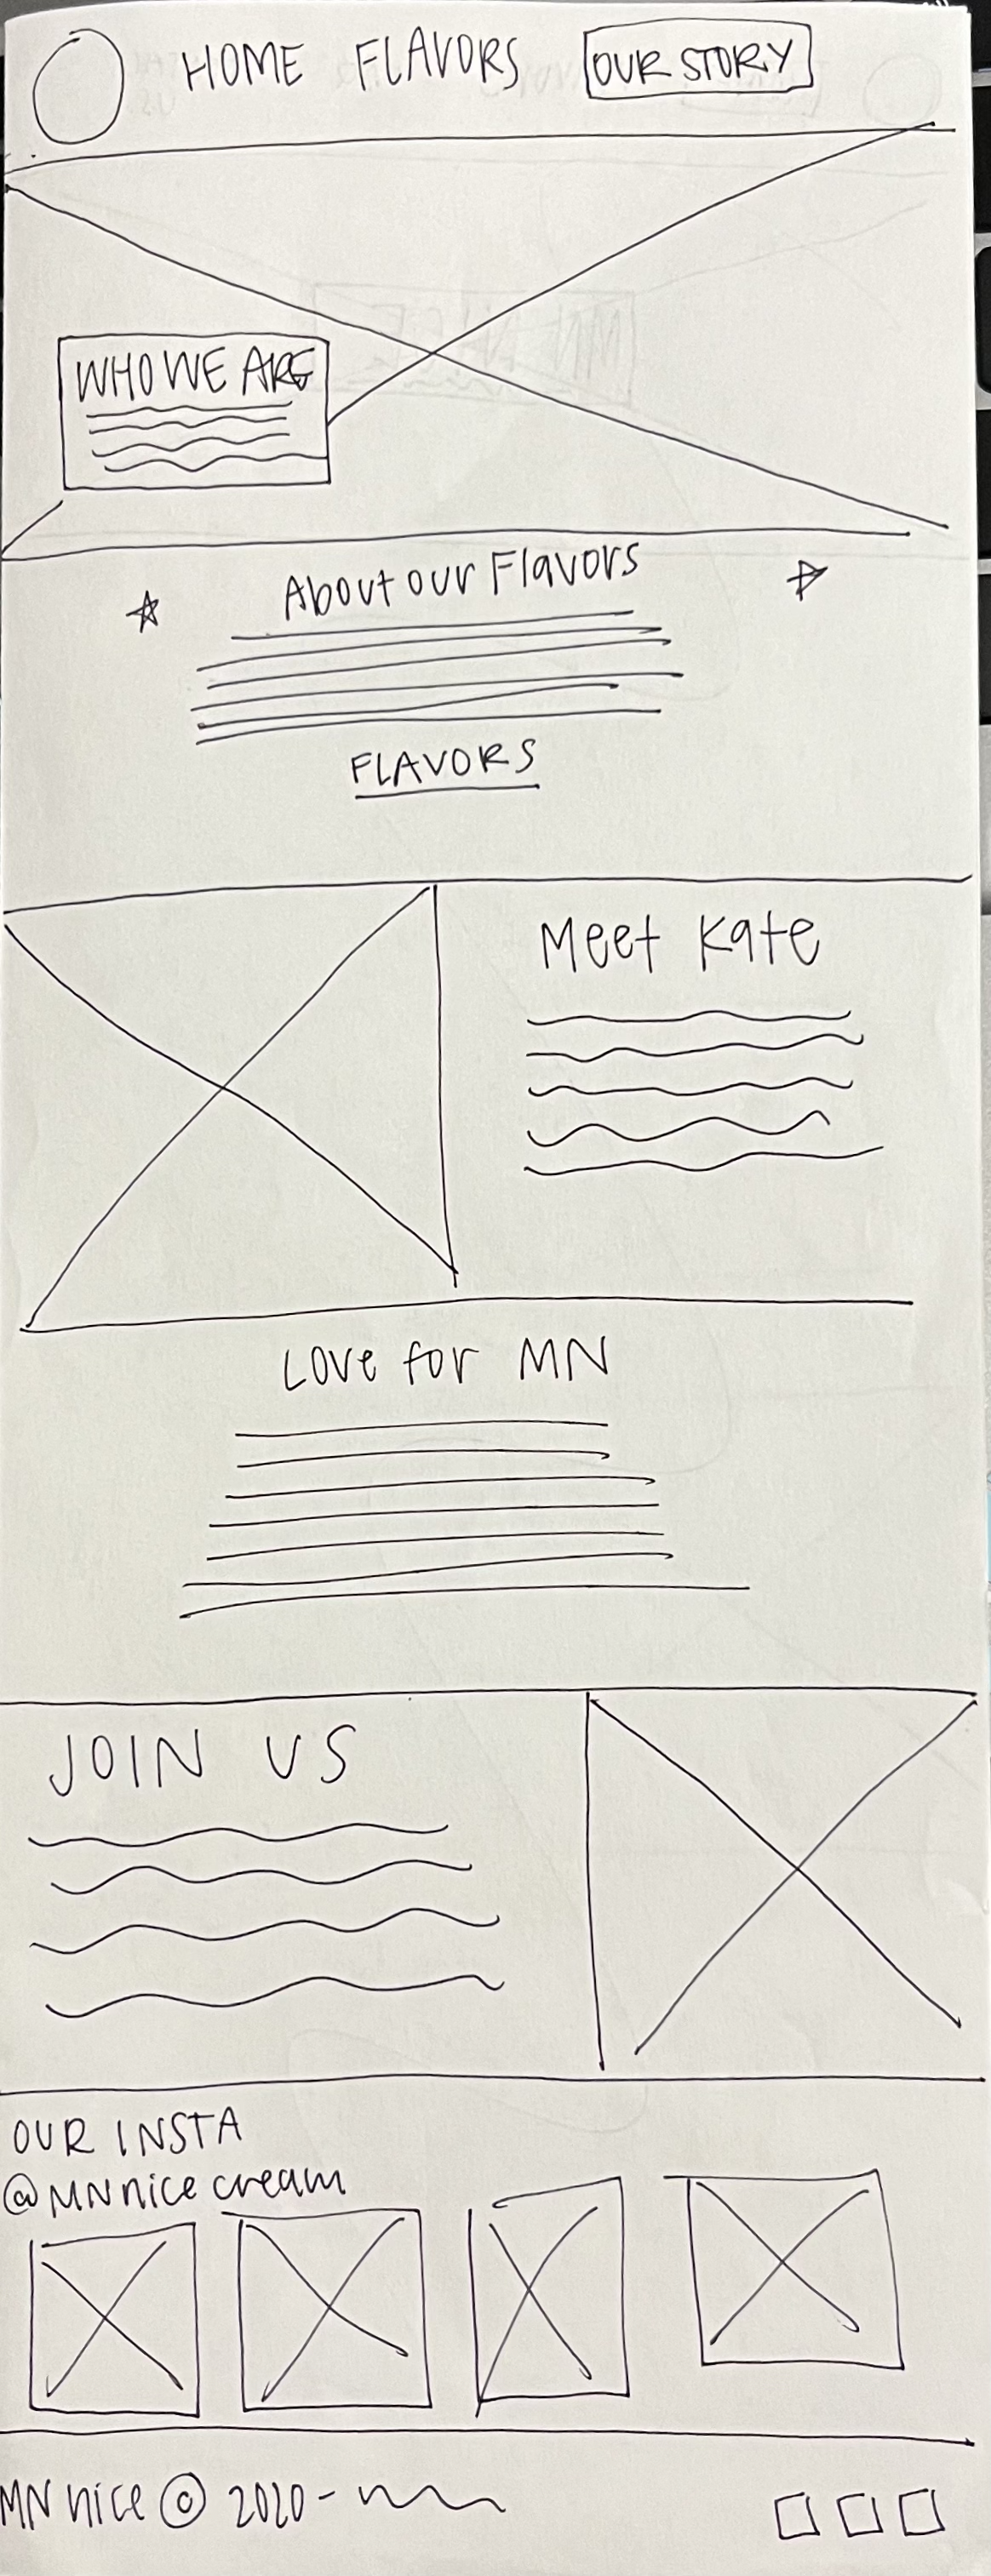 HOME FLAVORS OUR STORY
WHO WE ARE
About our Flavors
FLAVORS
Meet Kate
Love for MN
JOIN US
OUR INSTA
@MNnice cream
MN nice © 2020 -